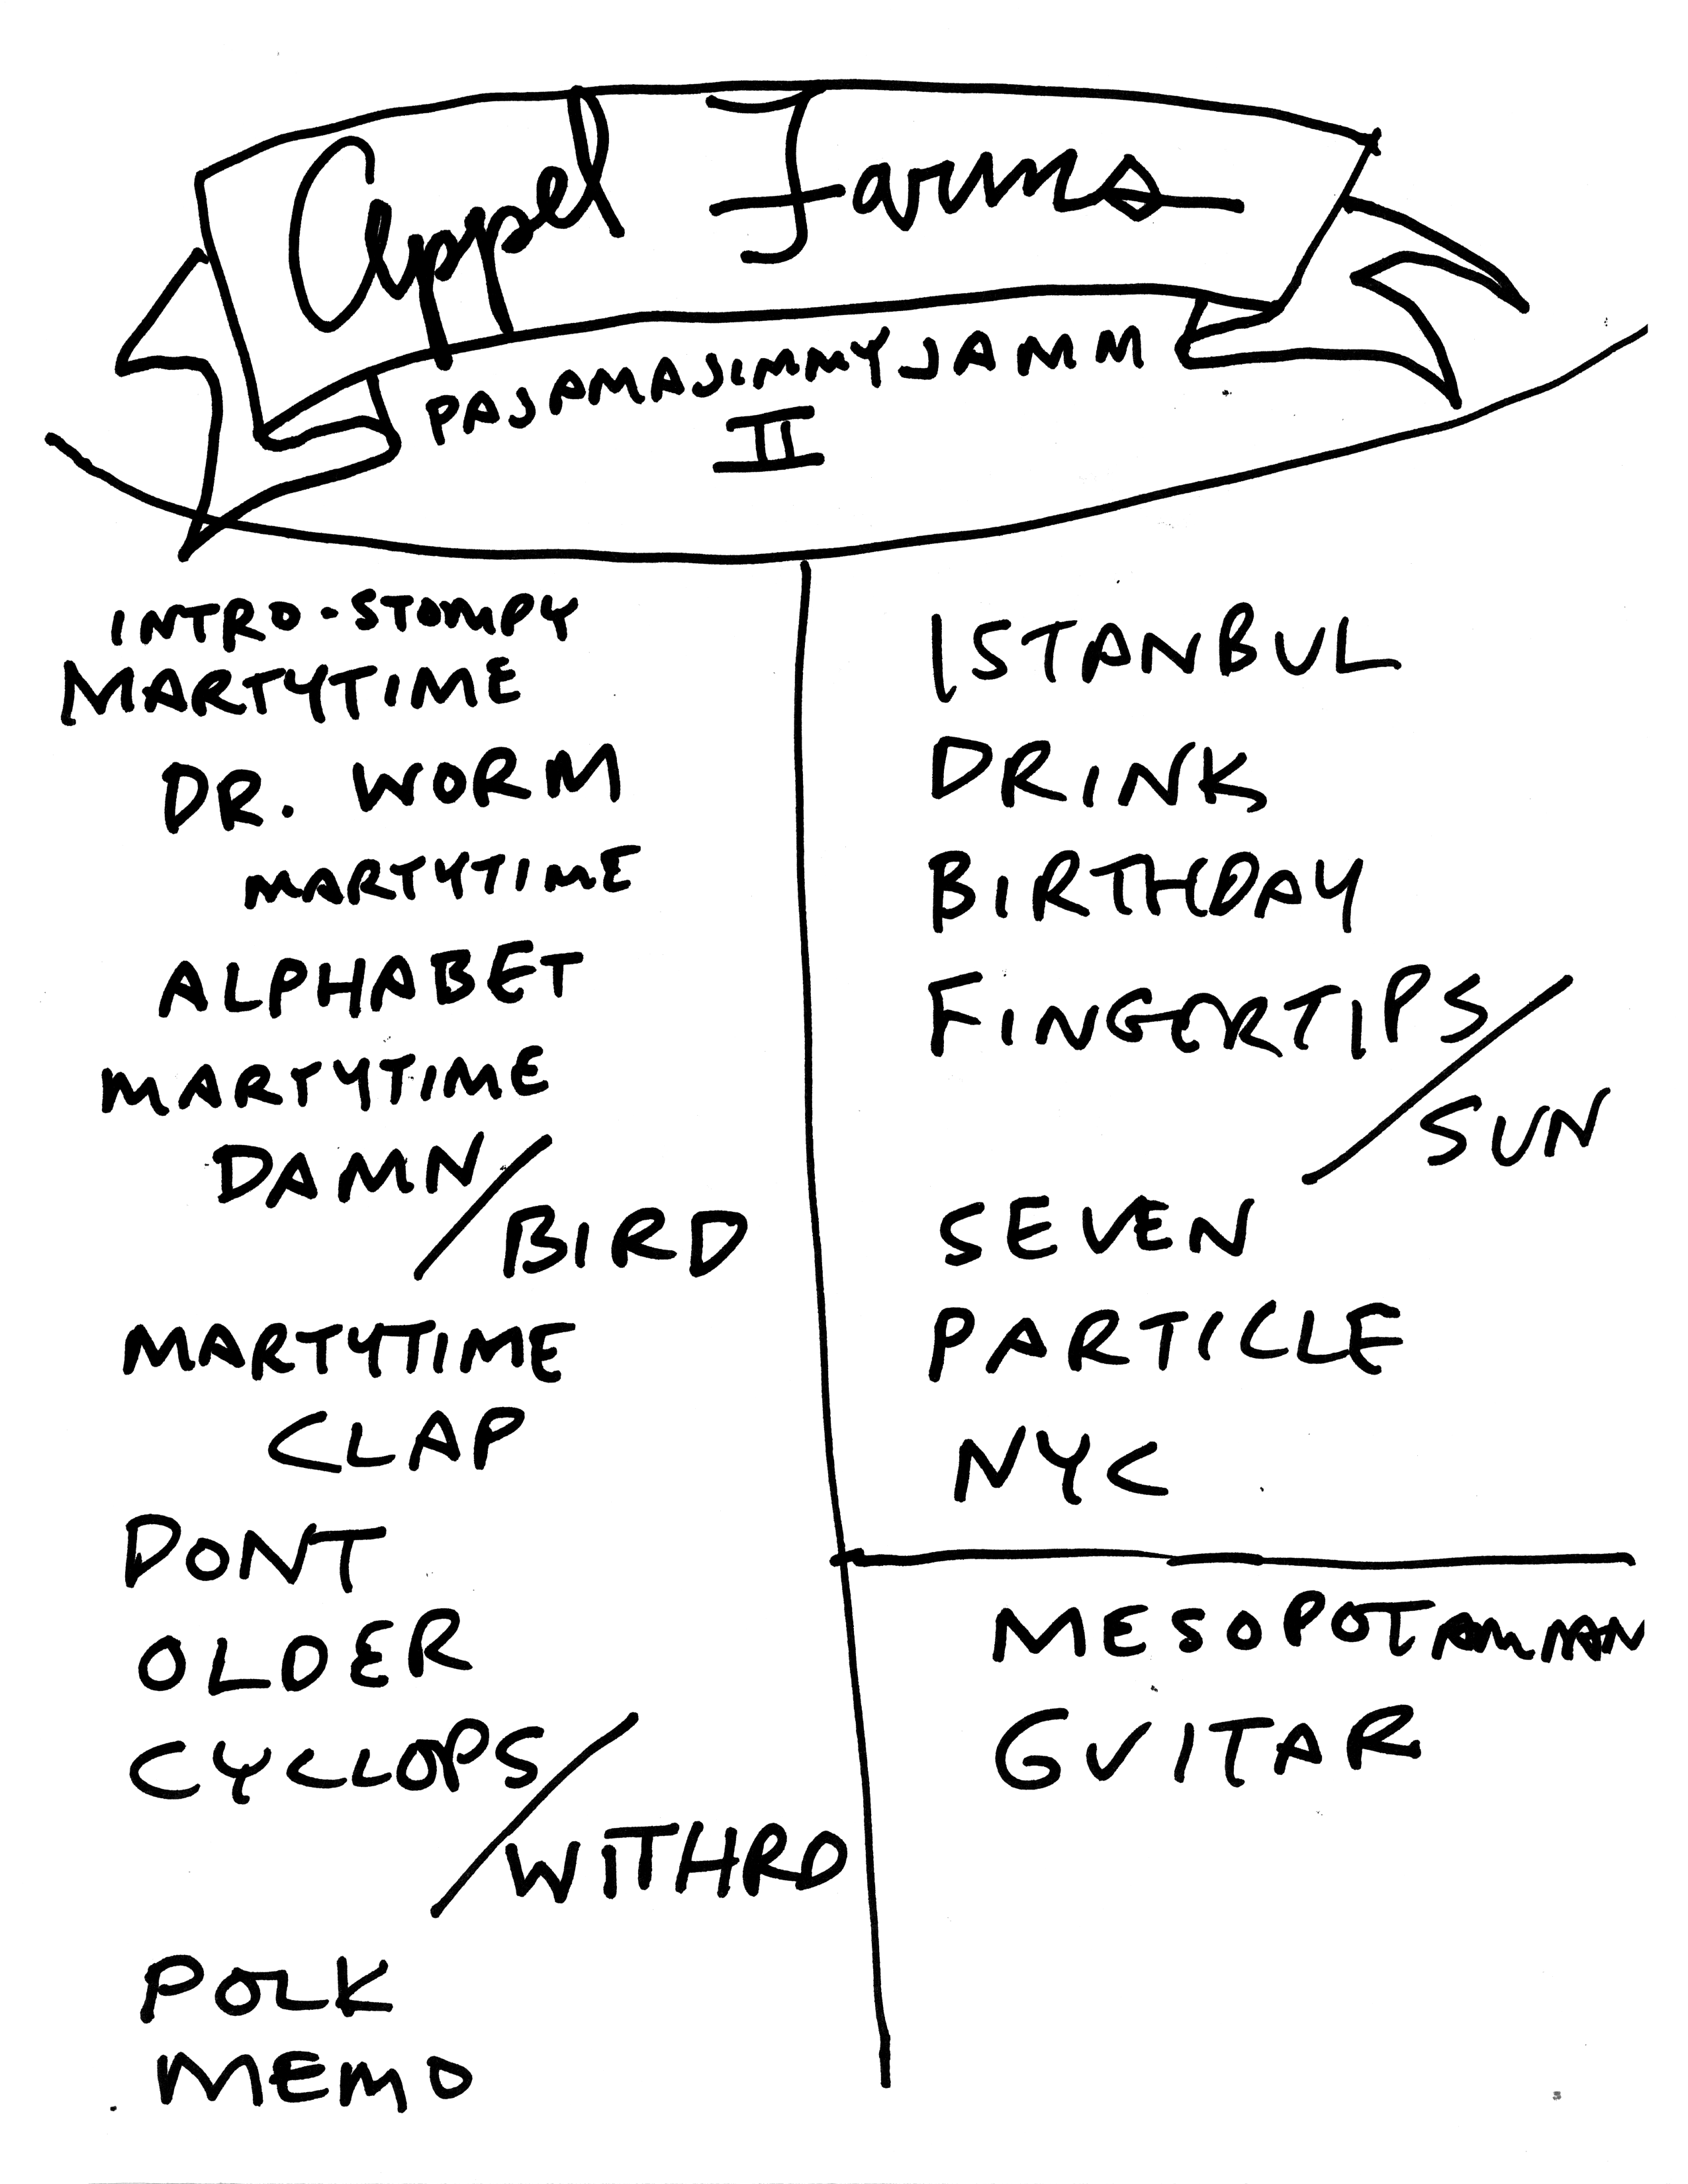 Appel Farms
PAJAMAJIMMYJAMM
II
INTRO-STOMPY
MARTYTIME
DR. WORM
MARTYTIME
ALPHABET
MARTYTIME
DAMN/
BIRD
MARTYTIME
CLAP
DONT
OLDER
CYCLOPS/
WITHRD
POLK
MEMO
ISTANBUL
DRINK
BIRTHDAY
FINGERTIPS/
SUN
SEVEN
PARTICLE
NYC
MESOPOTAMIAN
GUITAR